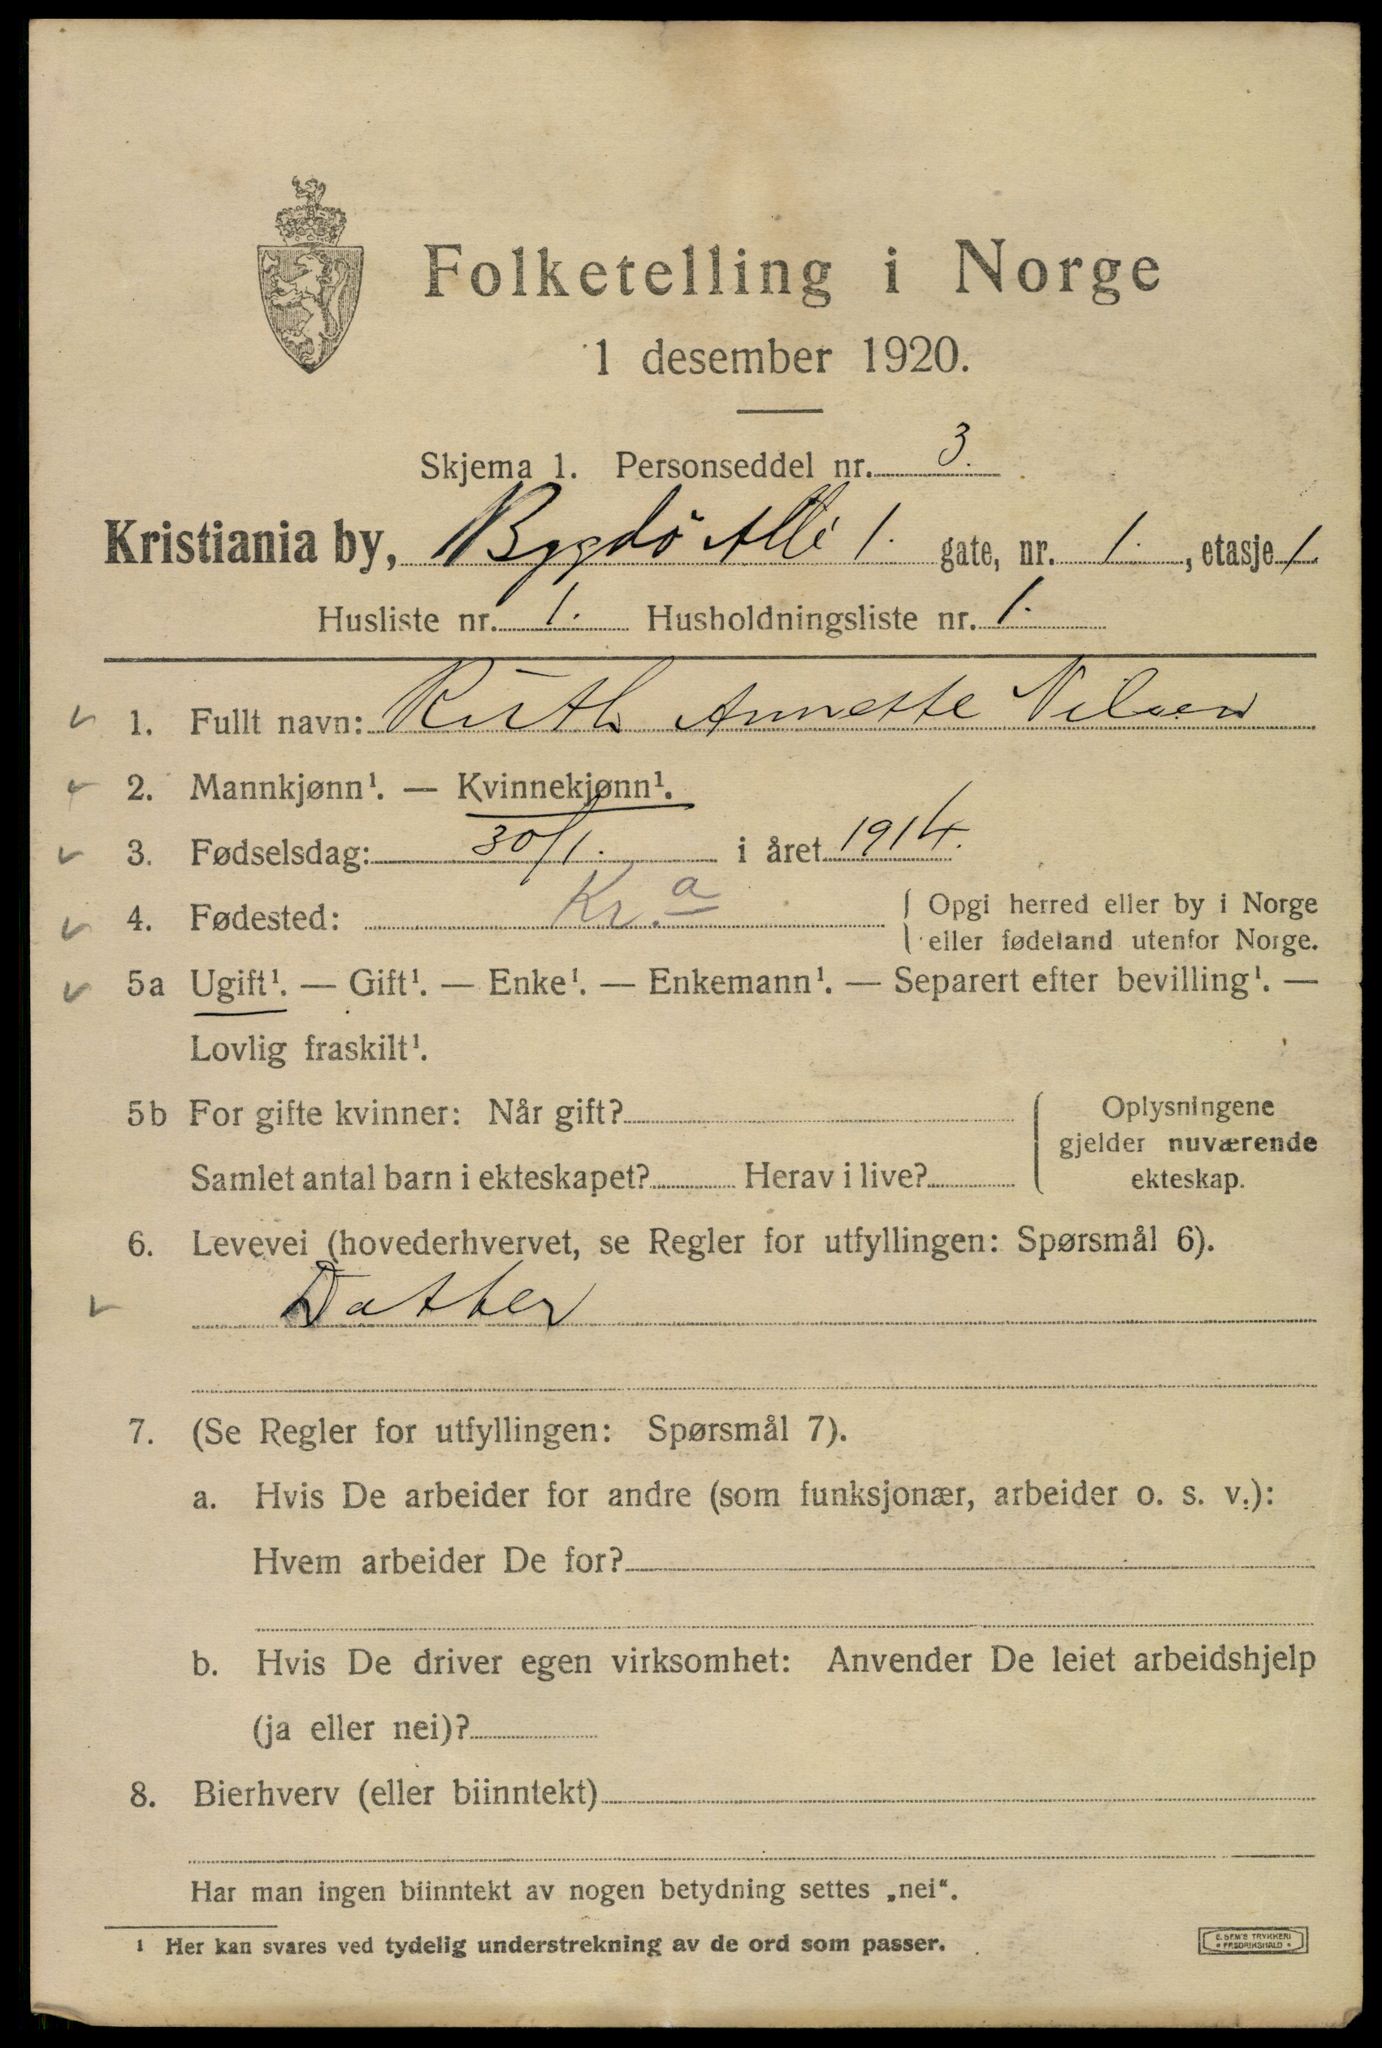 Folketelling i Norge
1 desember 1920.
Skjema 1. Personseddel nr. 3.
Kristiania by, Bygdö Allé 1. gate, nr. 1., etasje 1
Husliste nr. 1. Husholdningsliste nr. 1.
1. Fullt navn: Ruth Annette Nilsen
2. Mannkjønn¹. — Kvinnekjønn¹.
3. Fødselsdag: 30/1. i året 1914.
4. Fødested: Kr.a { Opgi herred eller by i Norge
eller fødeland utenfor Norge.
5a Ugift¹. — Gift¹. — Enke¹. — Enkemann¹. — Separert efter bevilling¹. —
Lovlig fraskilt¹.
5b For gifte kvinner: Når gift? { Oplysningene
gjelder nuværende
Samlet antal barn i ekteskapet? Herav i live? ekteskap.
6. Levevei (hovederhvervet, se Regler for utfyllingen: Spørsmål 6).
Datter
7. (Se Regler for utfyllingen: Spørsmål 7).
a. Hvis De arbeider for andre (som funksjonær, arbeider o. s. v.):
Hvem arbeider De for?
b. Hvis De driver egen virksomhet: Anvender De leiet arbeidshjelp
(ja eller nei)?
8. Bierhverv (eller biinntekt)
Har man ingen biinntekt av nogen betydning settes „nei“.
¹ Her kan svares ved tydelig understrekning av de ord som passer.
E. SEM'S TRYKKERI
• FREDRIKSHALD •